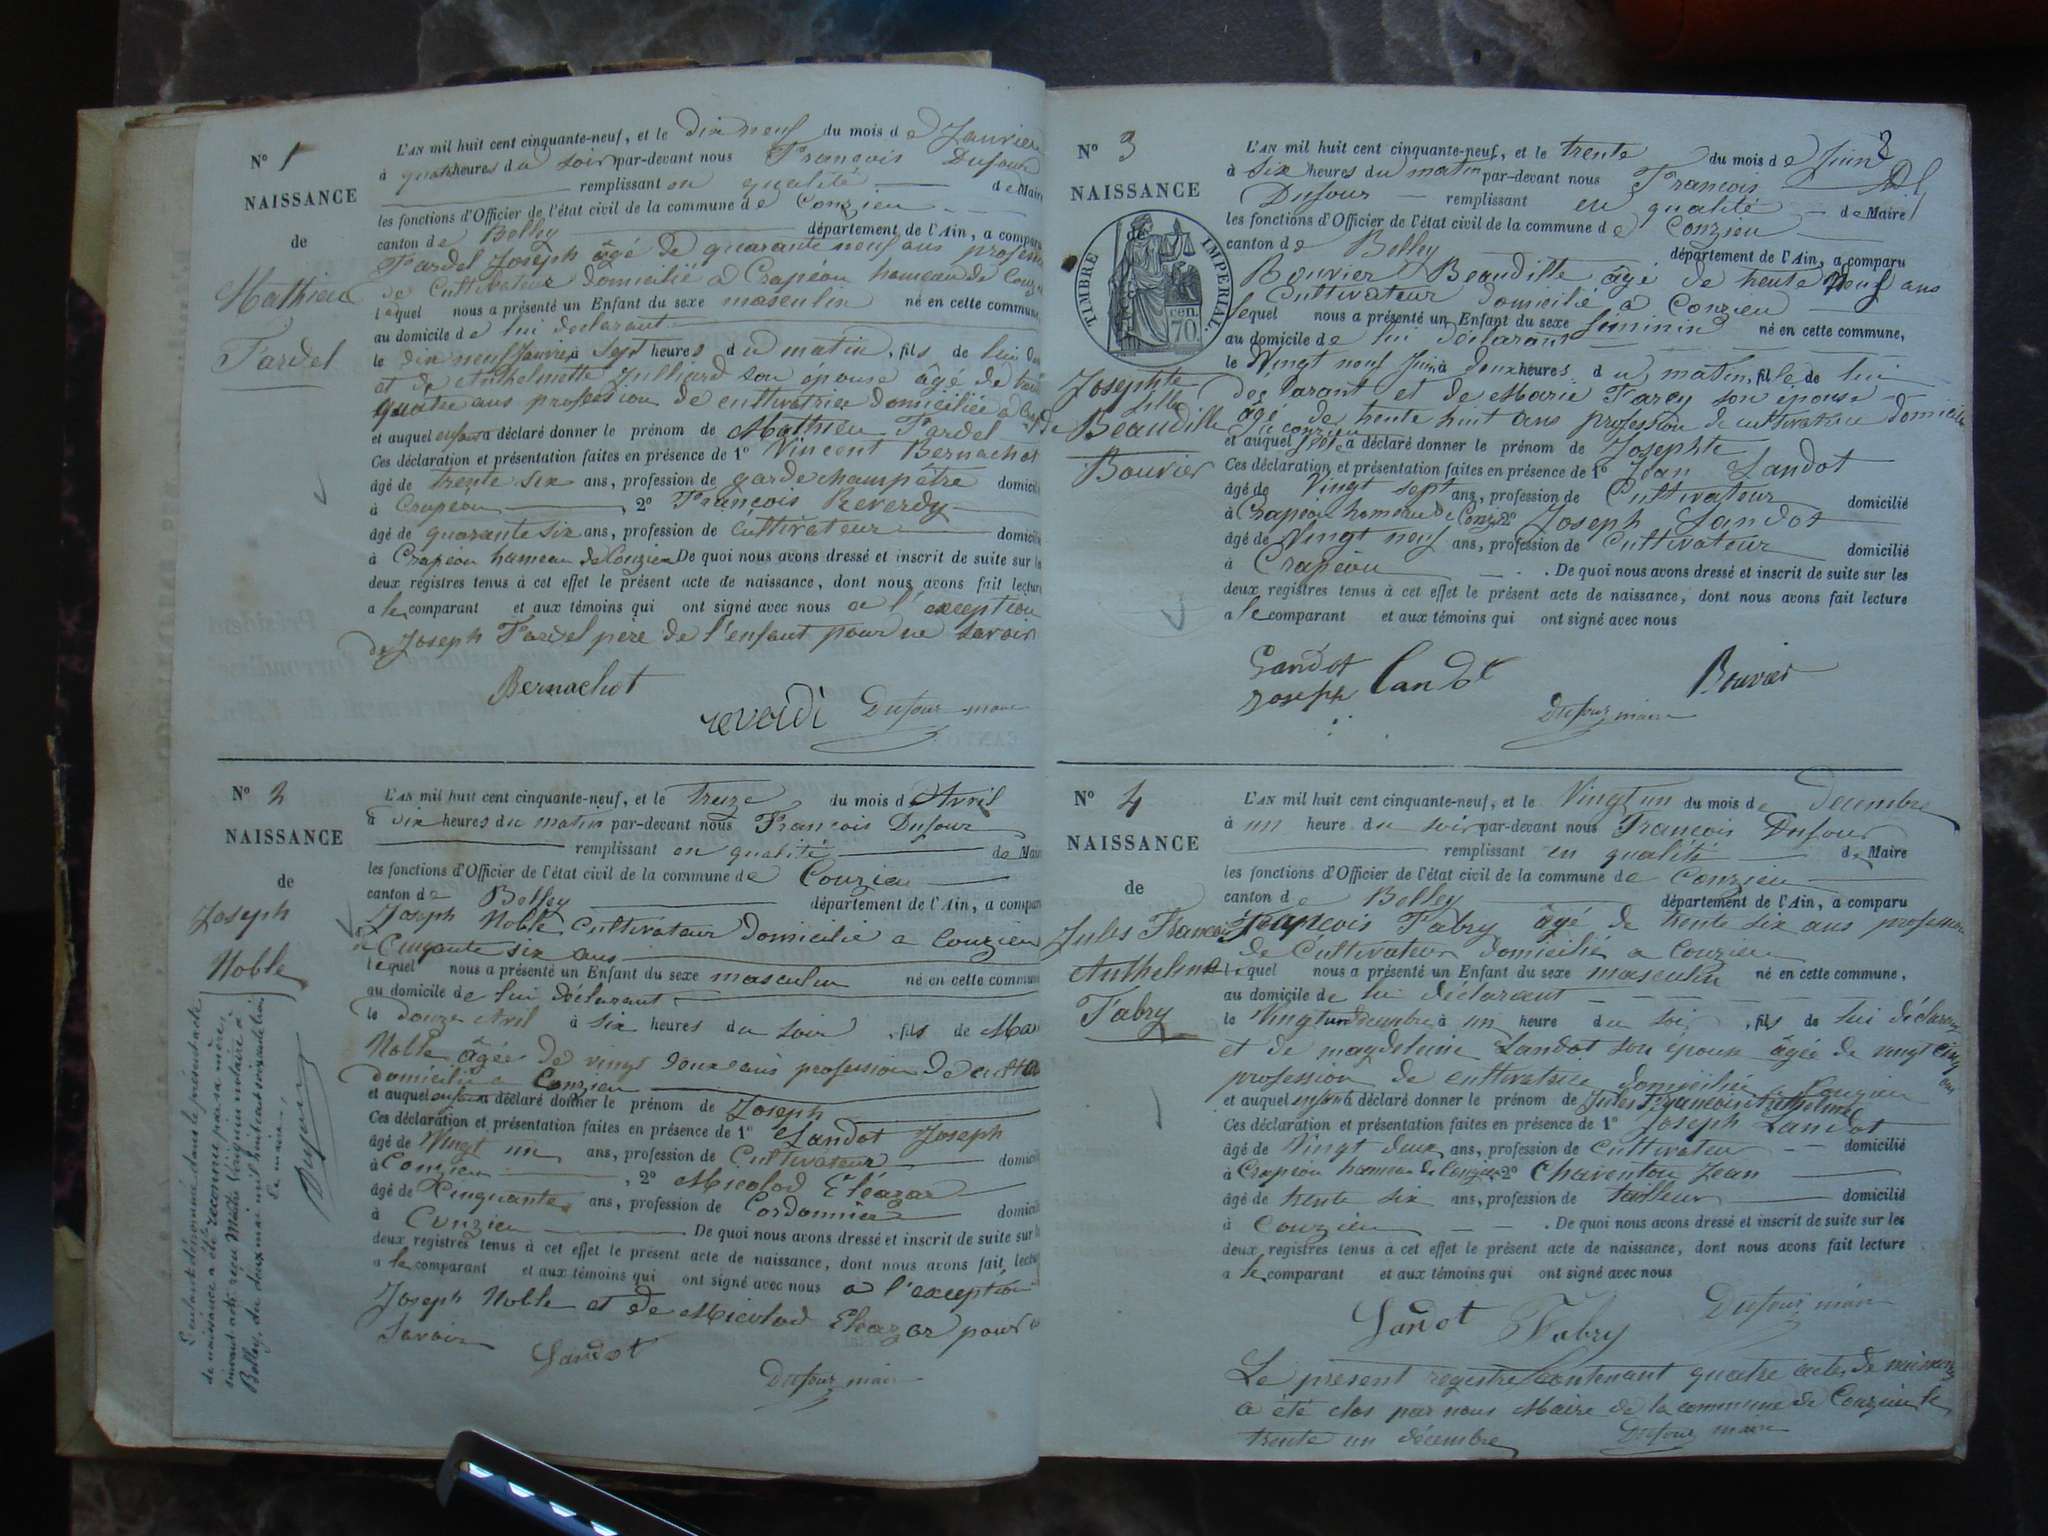 N° 1
NAISSANCE
de
Mathieu
Fardel
L'AN mil huit cent cinquante-neuf, et le dix neuf du mois de Janvier
à quatre heures du soir par-devant nous François Dufour
remplissant en qualité de Maire
les fonctions d'Officier de l'état civil de la commune de Conzieu
canton de Belley département de l'Ain, a comparu
Fardel Joseph âgé de quarante neuf ans profession
de Cultivateur domicilié à Crapéou hameau de
lequel nous a présenté un Enfant du sexe masculin né en cette commune,
au domicile de lui déclarant
le dix neuf Janvier à sept heures du matin, fils de lui
et de Anthelmette Julliard son épouse âgé de
quatre ans profession de cultivatrice domiciliée à
et auquel enfant a déclaré donner le prénom de Mathieu Fardel
Ces déclaration et présentation faites en présence de 1° Vincent Bernachot
âgé de trente six ans, profession de garde champêtre domicilié
à Crapéou, 2° François Reverdy
âgé de quarante six ans, profession de cultivateur domicilié
à Crapéou hameau de Conzieu De quoi nous avons dressé et inscrit de suite sur les
deux registres tenus à cet effet le présent acte de naissance, dont nous avons fait lecture
a le comparant et aux témoins qui ont signé avec nous a l'exception
de Joseph Fardel père de l'enfant pour ne savoir
Bernachot
revordi Dufour maire
N° 2
NAISSANCE
de
Joseph
Noble
L'enfant dénommé dans le présent acte
de naissance a été reconnu par sa mère,
suivant acte reçu notaire à
Belley, du deux mai mil huit cent soixante
Le maire,
Dufour
L'AN mil huit cent cinquante-neuf, et le treize du mois d'Avril
à dix heures du matin par-devant nous François Dufour
remplissant en qualité de Maire
les fonctions d'Officier de l'état civil de la commune de Conzieu
canton de Belley département de l'Ain, a comparu
Joseph Noble Cultivateur domicilié a Conzieu
Cinquante six ans
lequel nous a présenté un Enfant du sexe masculin né en cette commune
au domicile de lui déclarant
le douze Avril à six heures du soir, fils de
Noble âgée de vingt deux ans profession de
domiciliée a Conzieu
et auquel enfant a déclaré donner le prénom de Joseph
Ces déclaration et présentation faites en présence de 1° Landot Joseph
âgé de Vingt un ans, profession de Cultivateur domicilié
à Conzieu, 2° Micolod Eléazar
âgé de Cinquante ans, profession de Cordonnier domicilié
à Conzieu De quoi nous avons dressé et inscrit de suite sur les
deux registres tenus à cet effet le présent acte de naissance, dont nous avons fait lecture
a le comparant et aux témoins qui ont signé avec nous a l'exception
Joseph Noble et de Micolod Eléazar pour
Savoir
Landot
Dufour maire
3
N° 3
NAISSANCE
de
TIMBRE IMPERIAL
70 cen.
Josephte
fille
de Beaudille
Bouvier
L'AN mil huit cent cinquante-neuf, et le trente du mois de Juin
à six heures du matin par-devant nous François
Dufour remplissant en qualité de Maire
les fonctions d'Officier de l'état civil de la commune de Conzieu
canton de Belley département de l'Ain, a comparu
Bouvier Beaudille âgé de trente neuf ans
Cultivateur domicilié a Conzieu
lequel nous a présenté un Enfant du sexe féminin né en cette commune,
au domicile de lui déclarant
le Vingt neuf Juin à deux heures du matin, fille de lui
déclarant et de Marie Farcy son épouse
âgé de trente huit ans profession de cultivatrice domicilié
a conzieu
et auquel a déclaré donner le prénom de Josephte
Ces déclaration et présentation faites en présence de 1° Jean Landot
âgé de Vingt sept ans, profession de Cultivateur domicilié
à Crapéou hameau de Conzieu 2° Joseph Landot
âgé de Vingt neuf ans, profession de Cultivateur domicilié
à Crapéou. De quoi nous avons dressé et inscrit de suite sur les
deux registres tenus à cet effet le présent acte de naissance, dont nous avons fait lecture
a le comparant et aux témoins qui ont signé avec nous
Landot Landot Bouvier
Joseph
Dufour maire
N° 4
NAISSANCE
de
Jules François
Anthelme
Fabry
L'AN mil huit cent cinquante-neuf, et le Vingt un du mois de Decembre
à un heure du soir par-devant nous François Dufour
remplissant en qualité de Maire
les fonctions d'Officier de l'état civil de la commune de Conzieu
canton de Belley département de l'Ain, a comparu
François Fabry âgé de trente six ans profession
de Cultivateur domicilié a Conzieu
lequel nous a présenté un Enfant du sexe masculin né en cette commune,
au domicile de lui déclarant
le Vingt un Decembre à un heure du soir, fils de lui déclarant
et de magdeleine Landot son épouse âgée de vingt cinq ans
profession de cultivatrice domiciliée a Conzieu
et auquel enfant a déclaré donner le prénom de Jules François Anthelme
Ces déclaration et présentation faites en présence de 1° Joseph Landot
âgé de Vingt deux ans, profession de Cultivateur domicilié
à Crapéou hameau de Conzieu 2° Charenton Jean
âgé de trente six ans, profession de tailleur domicilié
à Conzieu. De quoi nous avons dressé et inscrit de suite sur les
deux registres tenus à cet effet le présent acte de naissance, dont nous avons fait lecture
a le comparant et aux témoins qui ont signé avec nous
Landot Fabry Dufour maire
Le présent registre contenant quatre actes de naissance
a été clos par nous Maire de la commune de Conzieu le
trente un décembre Dufour maire